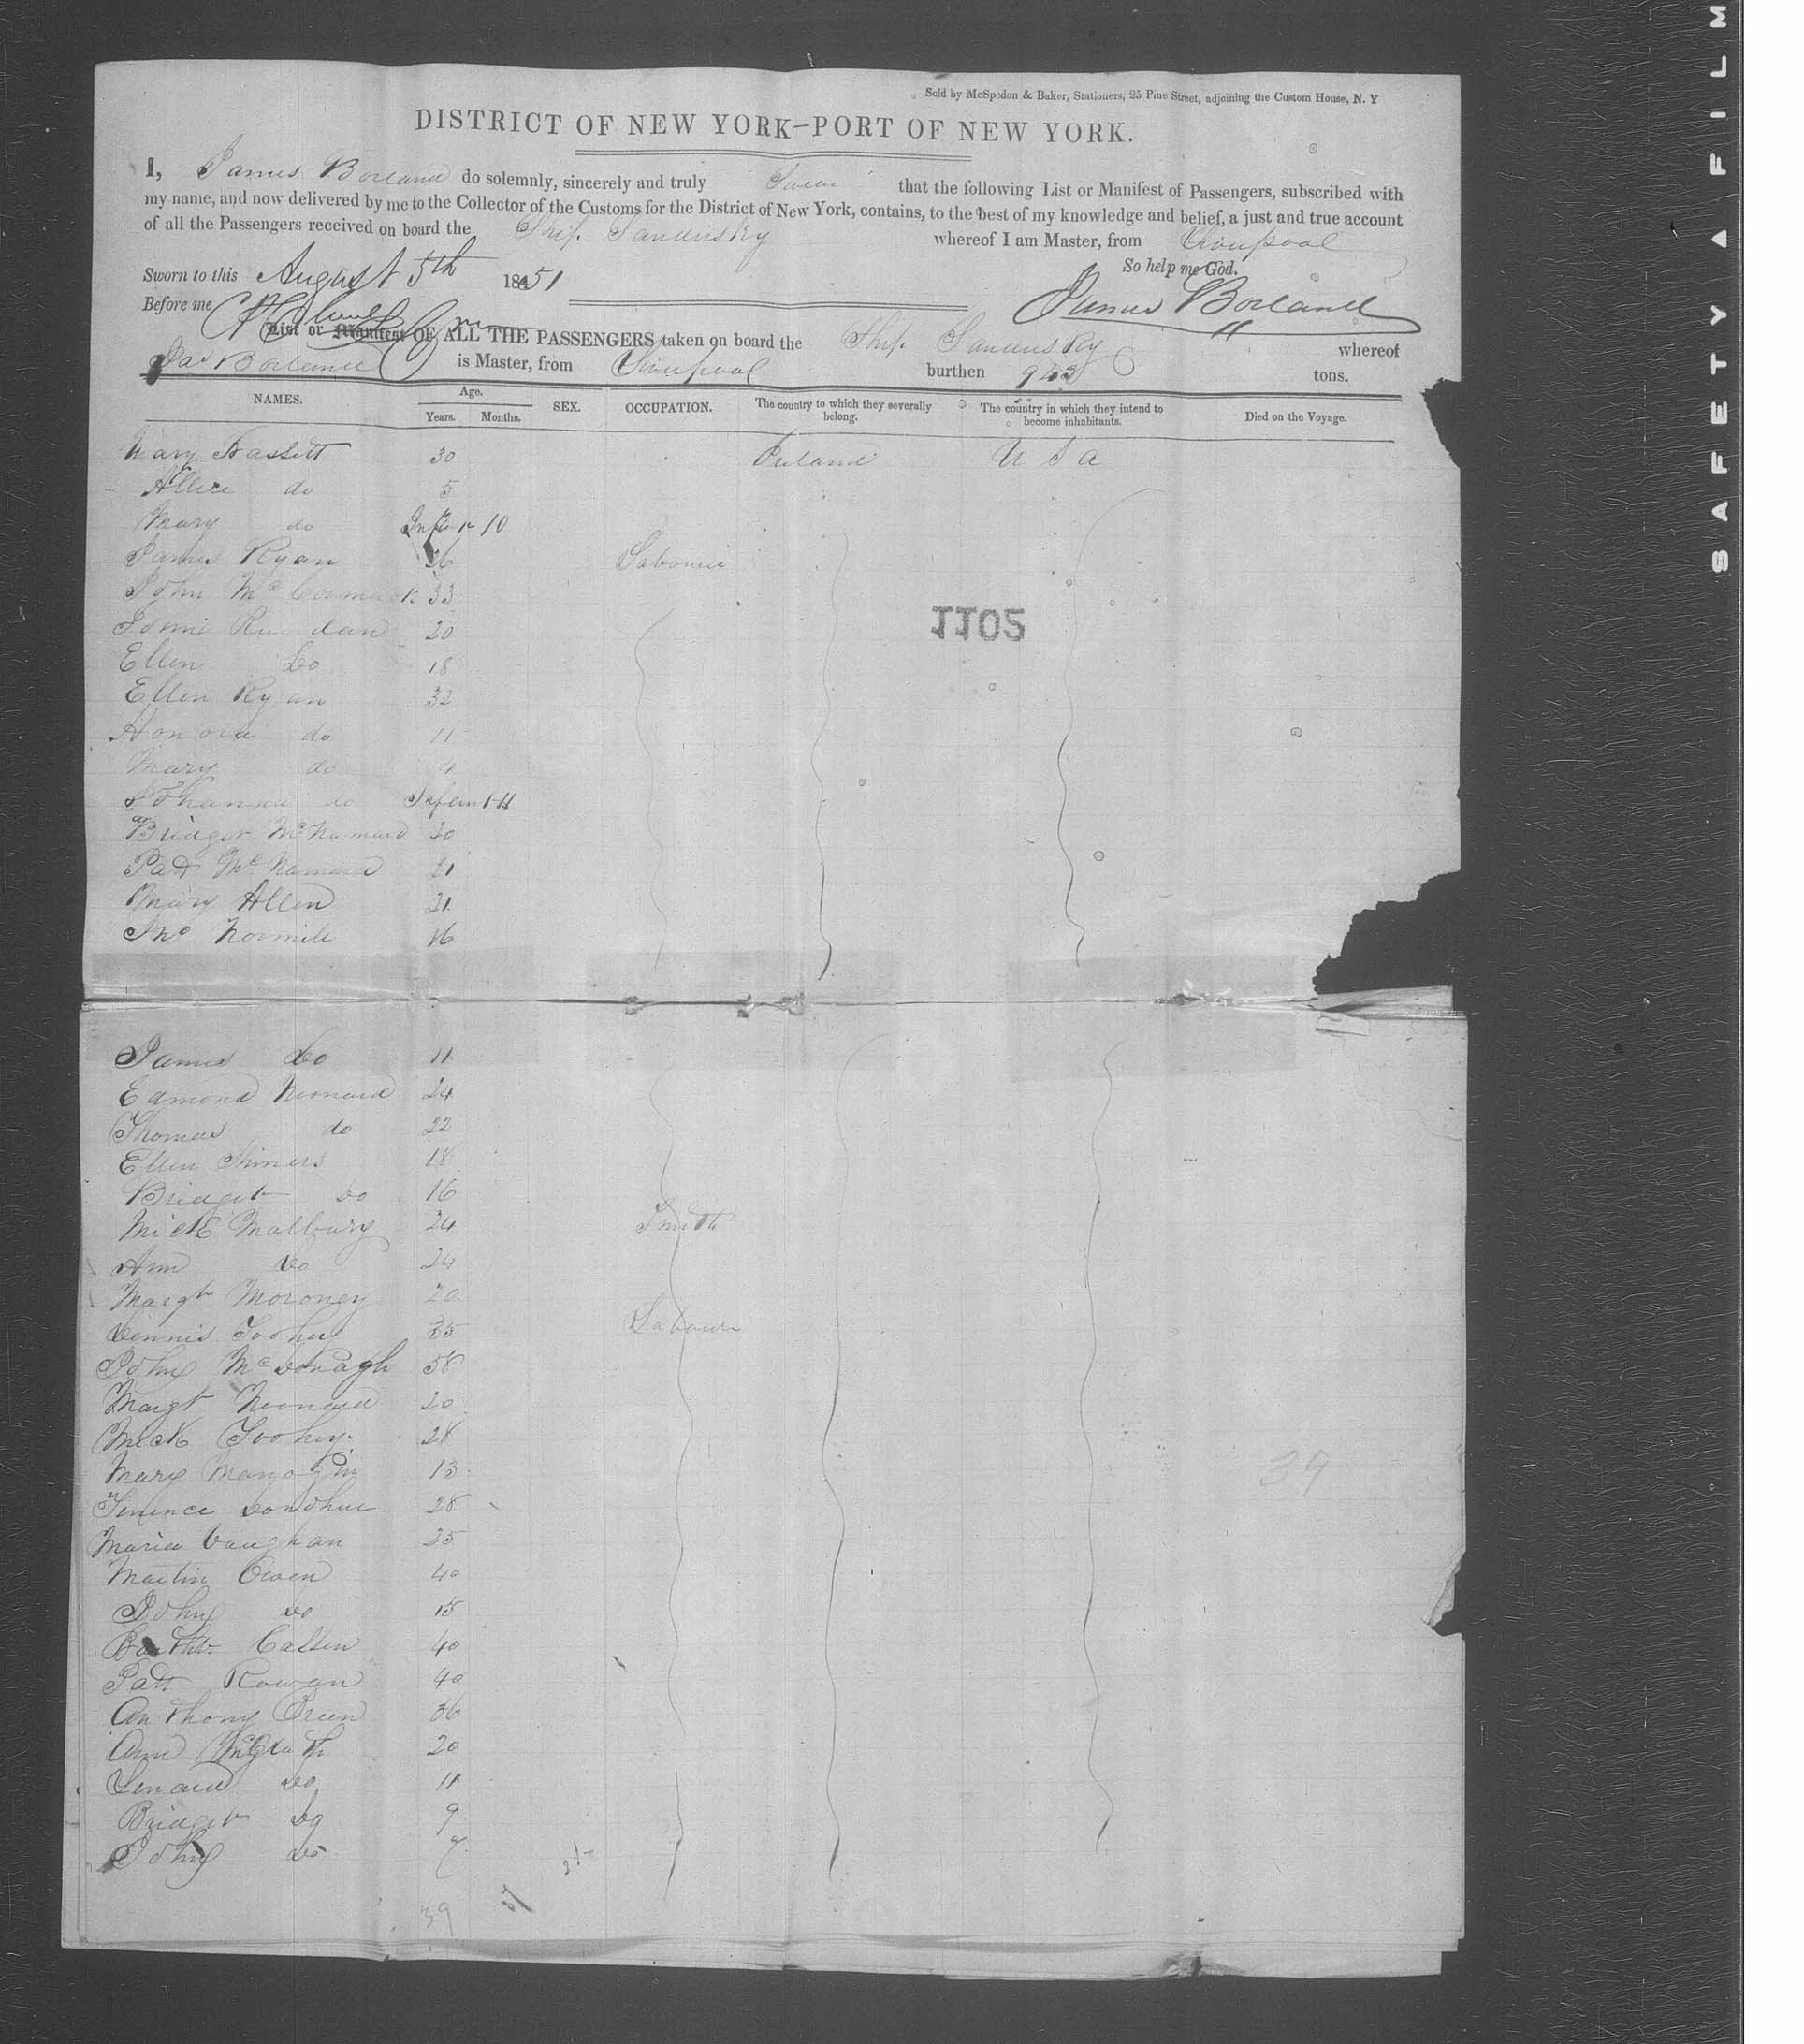 Sold by McSpedon & Baker, Stationers, 25 Pine Street, adjoining the Custom House, N. Y
DISTRICT OF NEW YORK—PORT OF NEW YORK.
I, James Borland do solemnly, sincerely and truly Swear that the following List or Manifest of Passengers, subscribed with
my name, and now delivered by me to the Collector of the Customs for the District of New York, contains, to the best of my knowledge and belief, a just and true account
of all the Passengers received on board the Ship Sandusky whereof I am Master, from Liverpool
So help me God.
Sworn to this August 5th 1851
Before me
James Borland
List or Manifest OF ALL THE PASSENGERS taken on board the Ship Sandusky whereof
Jas Borland is Master, from Liverpool burthen tons.
NAMES. Age. Years. Months. SEX. OCCUPATION. The country to which they severally belong. The country in which they intend to become inhabitants. Died on the Voyage.
Mary Hassett 30 Ireland U S A
Allice do 5
Mary do Infant 10
James Ryan 26 Labourer
John McCormack 33
20
Ellen Do 18
Ellen Ryan 32
Honora do 11
Mary do 9
Johanna do Infant 11
1102
Bridget McNamara 20
Pat McNamara 21
Mary Allen 21
Jno Normile 16
James Do 11
Edmond 24
Thomas do 22
Ellen 18
Bridget Do 16
Mick Malbury 24 Smith
Ann Do 24
Margt Moroney 20
Dennis Toohey 35 Labourer
John McDonagh 58
Margt 20
Mick Toohey 28
Mary 13
39
Terence Donohue 28
Maria Vaughan 25
Martin Owen 40
John Do 15
40
Patt Rowan 40
Anthony 36
Ann McGrath 20
Lenard Do 11
Bridget Do 9
John Do 7
39
SAFETY A FILM